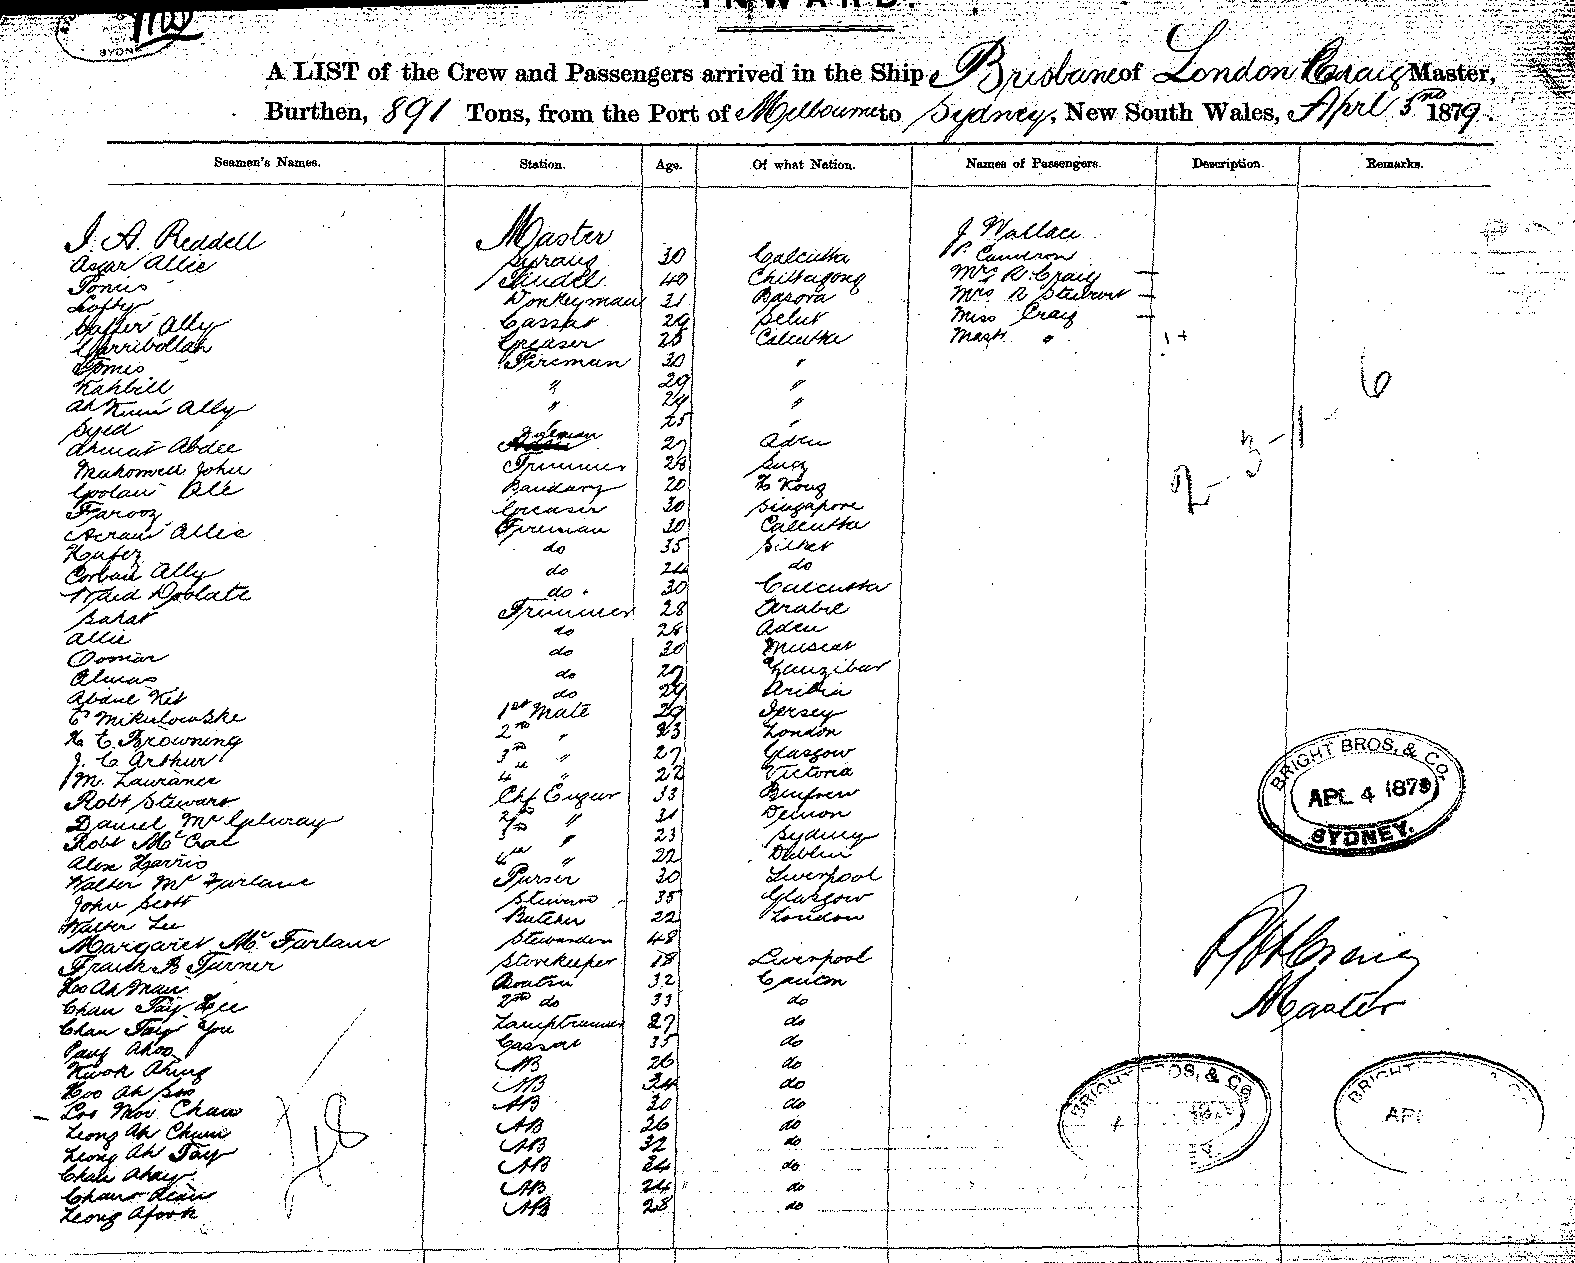 INWARD.
SYDN
A LIST of the Crew and Passengers arrived in the Ship Brisbane of London Craig Master,
Burthen, 891 Tons, from the Port of Melbourne to Sydney, New South Wales, April 5 1879.
Seamen's Names. Station. Age. Of what Nation. Names of Passengers. Description. Remarks.
J. A. Reddell Master J Wallace
Asgar Allie Syrang 30 Calcutta P. Cameron
Tonus Tindel 40 Chittagong Mrs R. Craig
Lofty Donkeyman 31 Basora Mrs R Stewart
Ally Cassab 29 Selut Miss Craig
Greaser 25 Calcutta Mast "
Tomis Fireman 30 "
Kahbill " 29 "
Ally " 24 "
Syed 25 "
Ahmat Abdee Fireman 27 Aden
Mahomed John Trimmer 28 Suez
Goolam Ale Bandary 20 H Kong
Farooz Greaser 30 Singapore
Acram Allie Fireman 30 Calcutta
Hafez do 35 Silhet
Corban Ally do 24 do
Doblate do 30 Calcutta
Sahat Trimmer 28 Arabie
Allie do 28 Aden
Oomar do 30 Muscat
Almas do 27 Zanzibar
Abdul Ket do 29 Aribia
E Mikulowske 1st Mate 29 Jersey
H E Browning 2nd " 23 London
J. C Arthur 3rd " 27 Glasgow
M. Laurance 4th " 22 Victoria
Robt Stewart Chf Enger 33 Renfrew
Daniel Mc Gilvray 2nd " 31 Devon
Robt McCrae 3rd " 23 Sydney
Alex Harris 4th " 22 Dublin
Walter Mc Farlane Purser 30 Liverpool
John Scott Steward 35 Glasgow
Walter Lee Butcher 22 London
Margaret Mc Farlane Stewardess 48
Frank B Turner Storekeeper 18 Liverpool
Loo Ah Boatsn 32 Canton
Chan Tay Lee 2nd do 33 do
Chan Tay You Lamptrimmer 27 do
Pang Ahoo Cassab 35 do
Kwok Ahing AB 26 do
Hoo Ah Soo AB 34 do
Loo Moi Chaw AB 30 do
Leong Ah Chun AB 26 do
Leong Ah Tay AB 32 do
Chan Ahay AB 34 do
Chan AB 24 do
Leong Afook AB 28 do
48
6
2 - 3 - 1 -
BRIGHT BROS, & CO.
APL 4 1879
SYDNEY.
Craig
Master
BRIGHT BROS, & CO
BRIGHT
APL